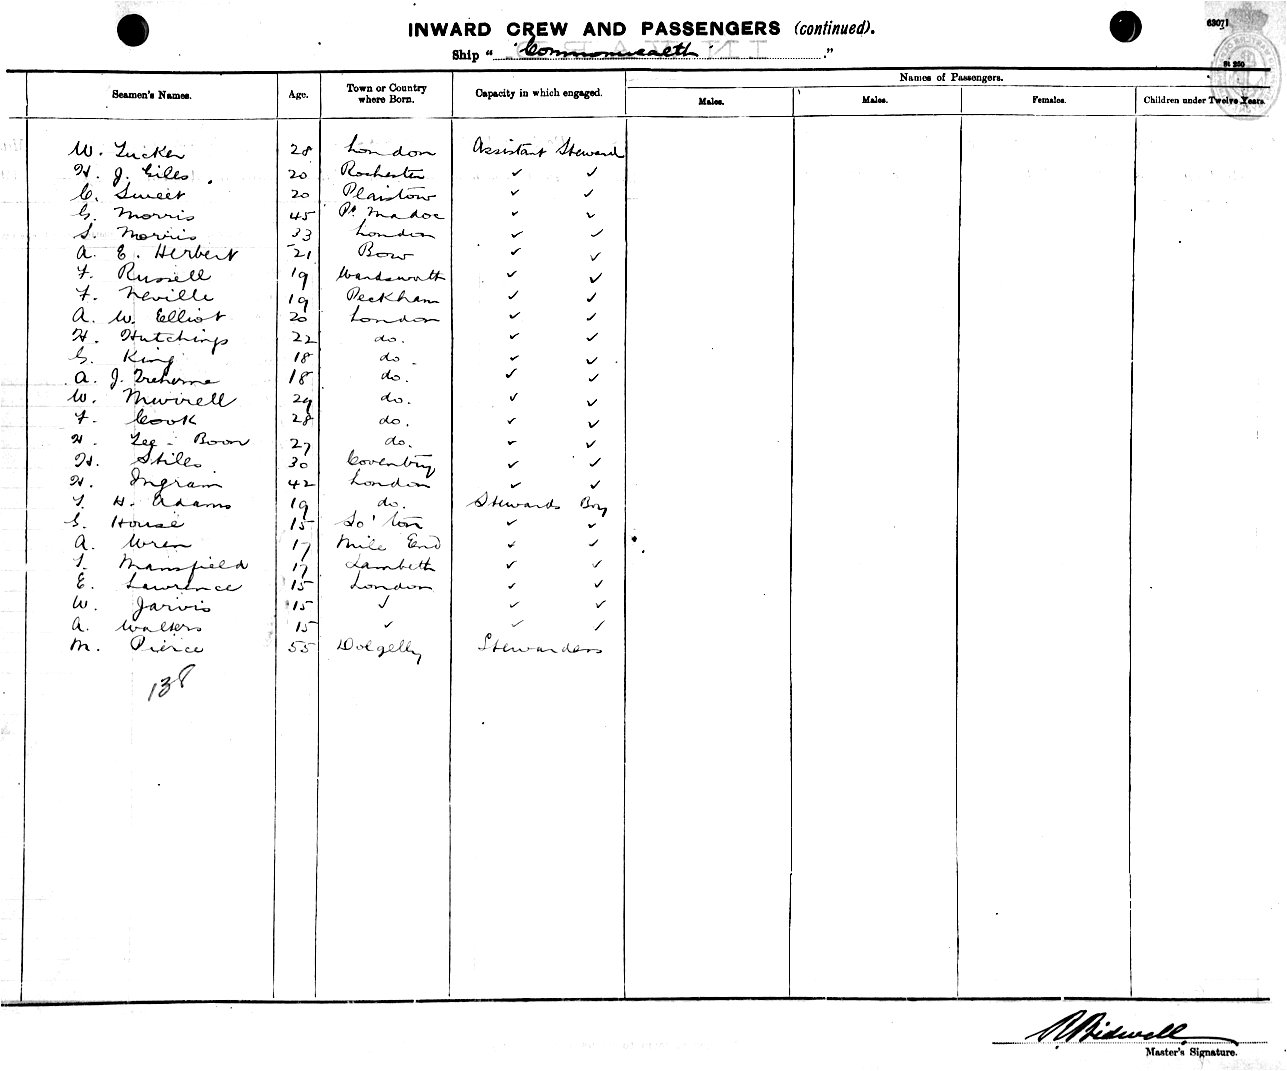 INWARD CREW AND PASSENGERS (continued).
63071
Ship "Commonwealth"
Seamen's Names. Age. Town or Country where Born. Capacity in which engaged. Names of Passengers.
Males. Males. Females. Children under Twelve Years.
W. Tucker 28 London Assistant Steward
H. J. Giles 20 Rochester ✓ ✓
C. Sweet 20 Plaistow ✓ ✓
G. Morris 45 Pt Madoc ✓ ✓
S. Morris 33 London ✓ ✓
A. E. Herbert 21 Bow ✓ ✓
F. Russell 19 Wandsworth ✓ ✓
F. Neville 19 Peckham ✓ ✓
A. W. Elliot 20 London ✓ ✓
H. Hutchings 22 do. ✓ ✓
G. King 18 do. ✓ ✓
A. J. Treherne 18 do. ✓ ✓
W. 29 do. ✓ ✓
F. Cook 28 do. ✓ ✓
H. Lee-Boon 27 do. ✓ ✓
H. Stiles 30 Coventry ✓ ✓
H. Ingram 42 London ✓ ✓
T. H. Adams 19 do. Stewards Boy
G. House 15 So'ton ✓ ✓
A. Wren 17 Mile End ✓ ✓
T. Mansfield 17 Lambeth ✓ ✓
E. Lawrence 15 London ✓ ✓
W. Jarvis 15 ✓ ✓ ✓
A. Walters 15 ✓ ✓ ✓
M. Pierce 55 Dolgelly Stewardess
138
R Bidwell
Master's Signature.